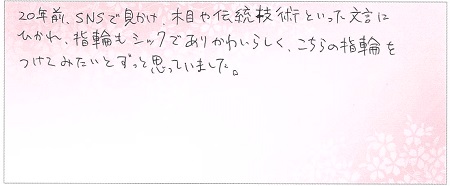 20年前、SNSで見かけ、木目や伝統技術といった文言に
ひかれ、指輪もシックでありかわいらしく、こちらの指輪を
つけてみたいとずっと思っていました。